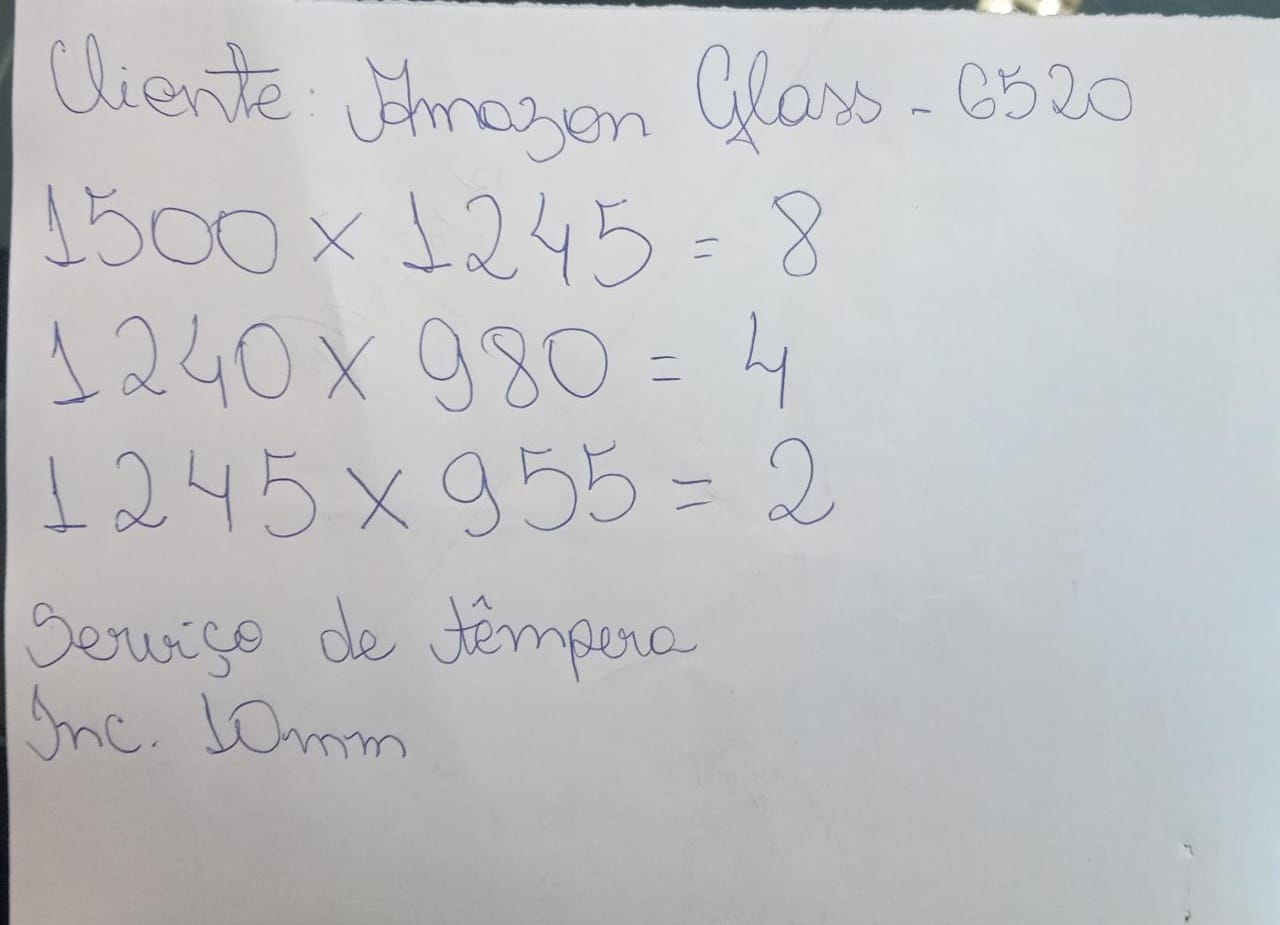 Cliente: Amazon Glass - 6520
1500 x 1245 = 8
1240 x 980 = 4
1245 x 955 = 2
Serviço de têmpera
Inc. 10mm